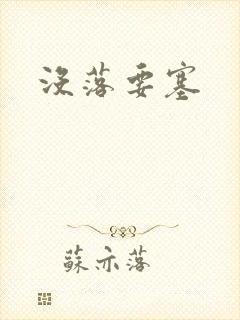 没落要塞
蘇亦落